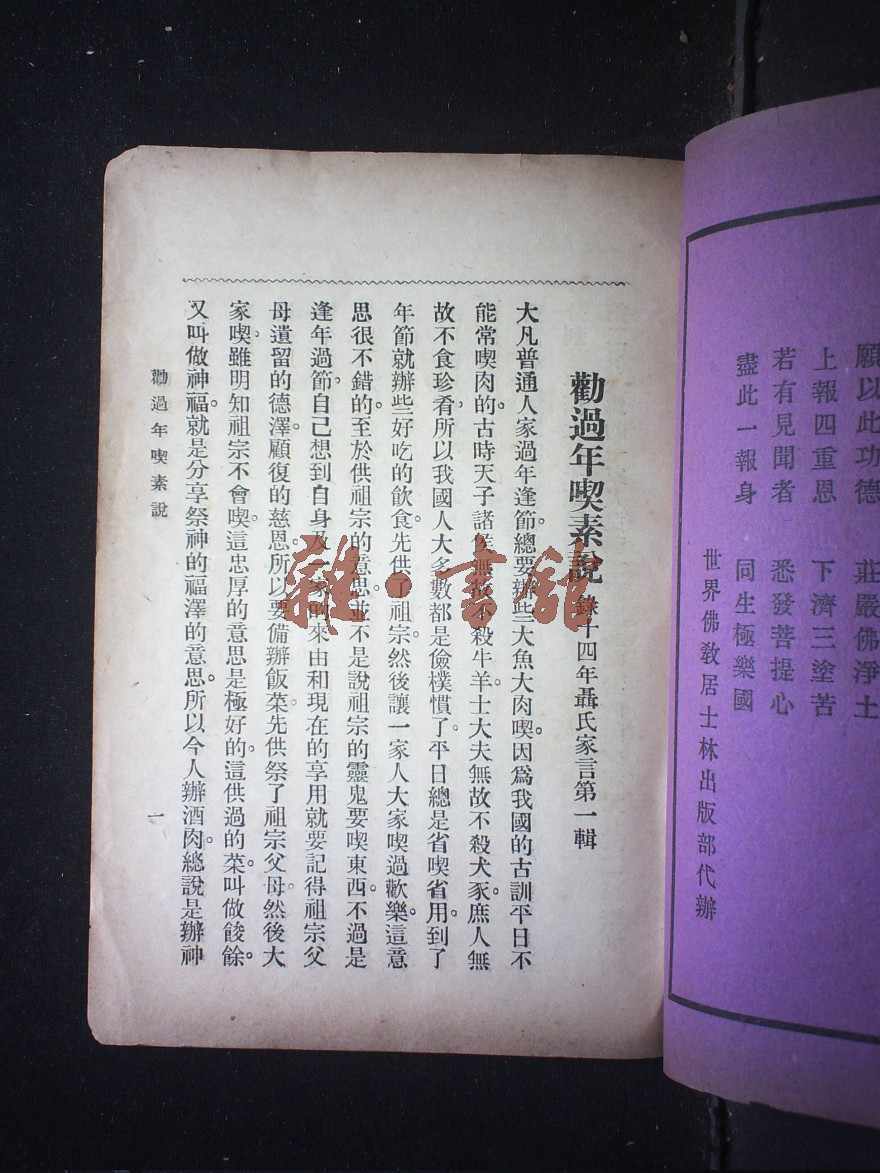 願以此功德　莊嚴佛淨土
上報四重恩　下濟三塗苦
若有見聞者　悉發菩提心
盡此一報身　同生極樂國
世界佛教居士林出版部代辦
勸過年喫素說 錄十四年聶氏家言第一輯
大凡普通人家過年逢節。總要辦些大魚大肉喫。因爲我國的古訓平日不
能常喫肉的。古時天子諸侯無故不殺牛羊。士大夫無故不殺犬豕。庶人無
故不食珍肴。所以我國人大多數都是儉樸慣了。平日總是省喫省用。到了
年節就辦些好吃的飲食。先供了祖宗。然後讓一家人大家喫過歡樂。這意
思很不錯的。至於供祖宗的意思。並不是說祖宗的靈鬼要喫東西。不過是
逢年過節。自己想到自身及一家的來由和現在的享用就要記得祖宗父
母遺留的德澤。顧復的慈恩。所以要備辦飯菜。先供祭了祖宗父母。然後大
家喫。雖明知祖宗不會喫。這忠厚的意思是極好的。這供過的菜。叫做餕餘。
又叫做神福。就是分享祭神的福澤的意思。所以今人辦酒肉。總說是辦神
勸過年喫素說
一
雜·書館